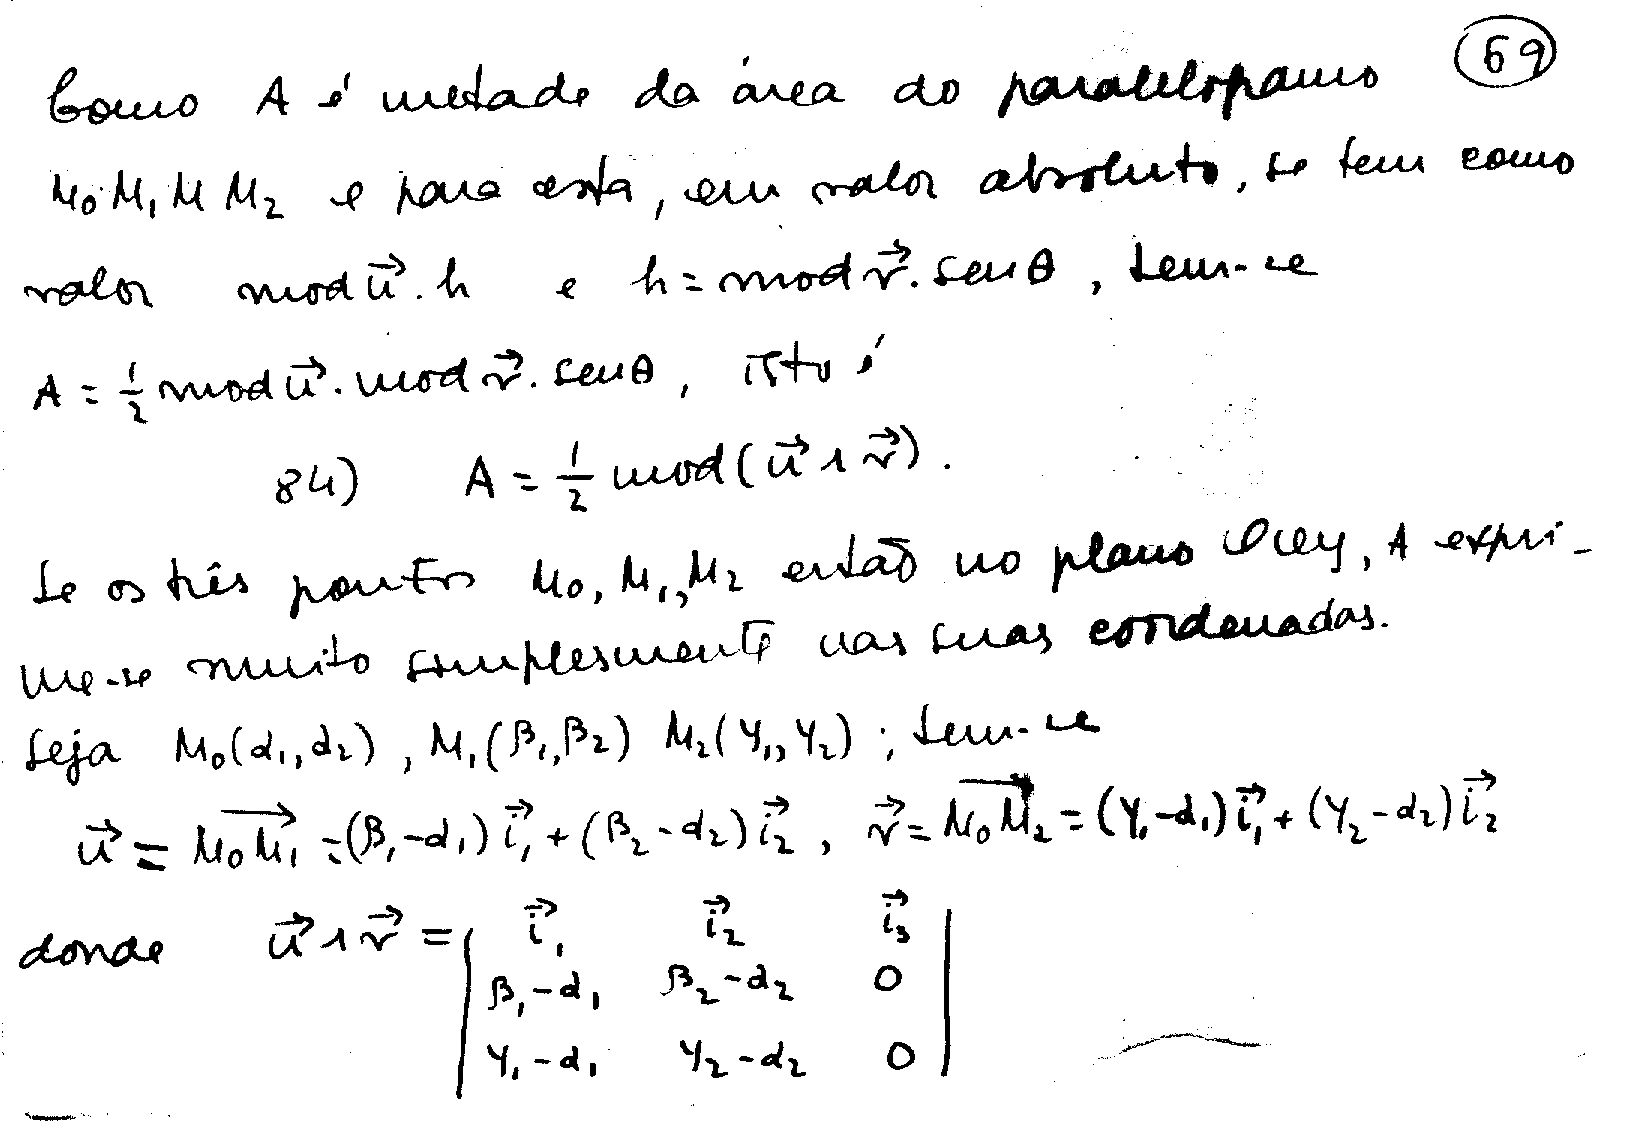 69
Como A é metade da área do paralelogramo
M₀M₁MM₂ e para esta, em valor absoluto, se tem como
valor mod u⃗.h e h = mod v⃗. sen θ, tem-se
A = ½ mod u⃗. mod v⃗. sen θ, isto é
84) A = ½ mod (u⃗ ∧ v⃗).
Se os três pontos M₀, M₁, M₂ estão no plano Oxy, A expri-
me-se muito simplesmente nas suas coordenadas.
Seja M₀(α₁, α₂), M₁(β₁, β₂) M₂(γ₁, γ₂); tem-se
u⃗ = M₀M₁⃗ = (β₁-α₁) i⃗₁ + (β₂-α₂) i⃗₂, v⃗ = M₀M₂⃗ = (γ₁-α₁) i⃗₁ + (γ₂-α₂) i⃗₂
donde u⃗ ∧ v⃗ = | i⃗₁ i⃗₂ i⃗₃ |
β₁-α₁ β₂-α₂ 0
γ₁-α₁ γ₂-α₂ 0